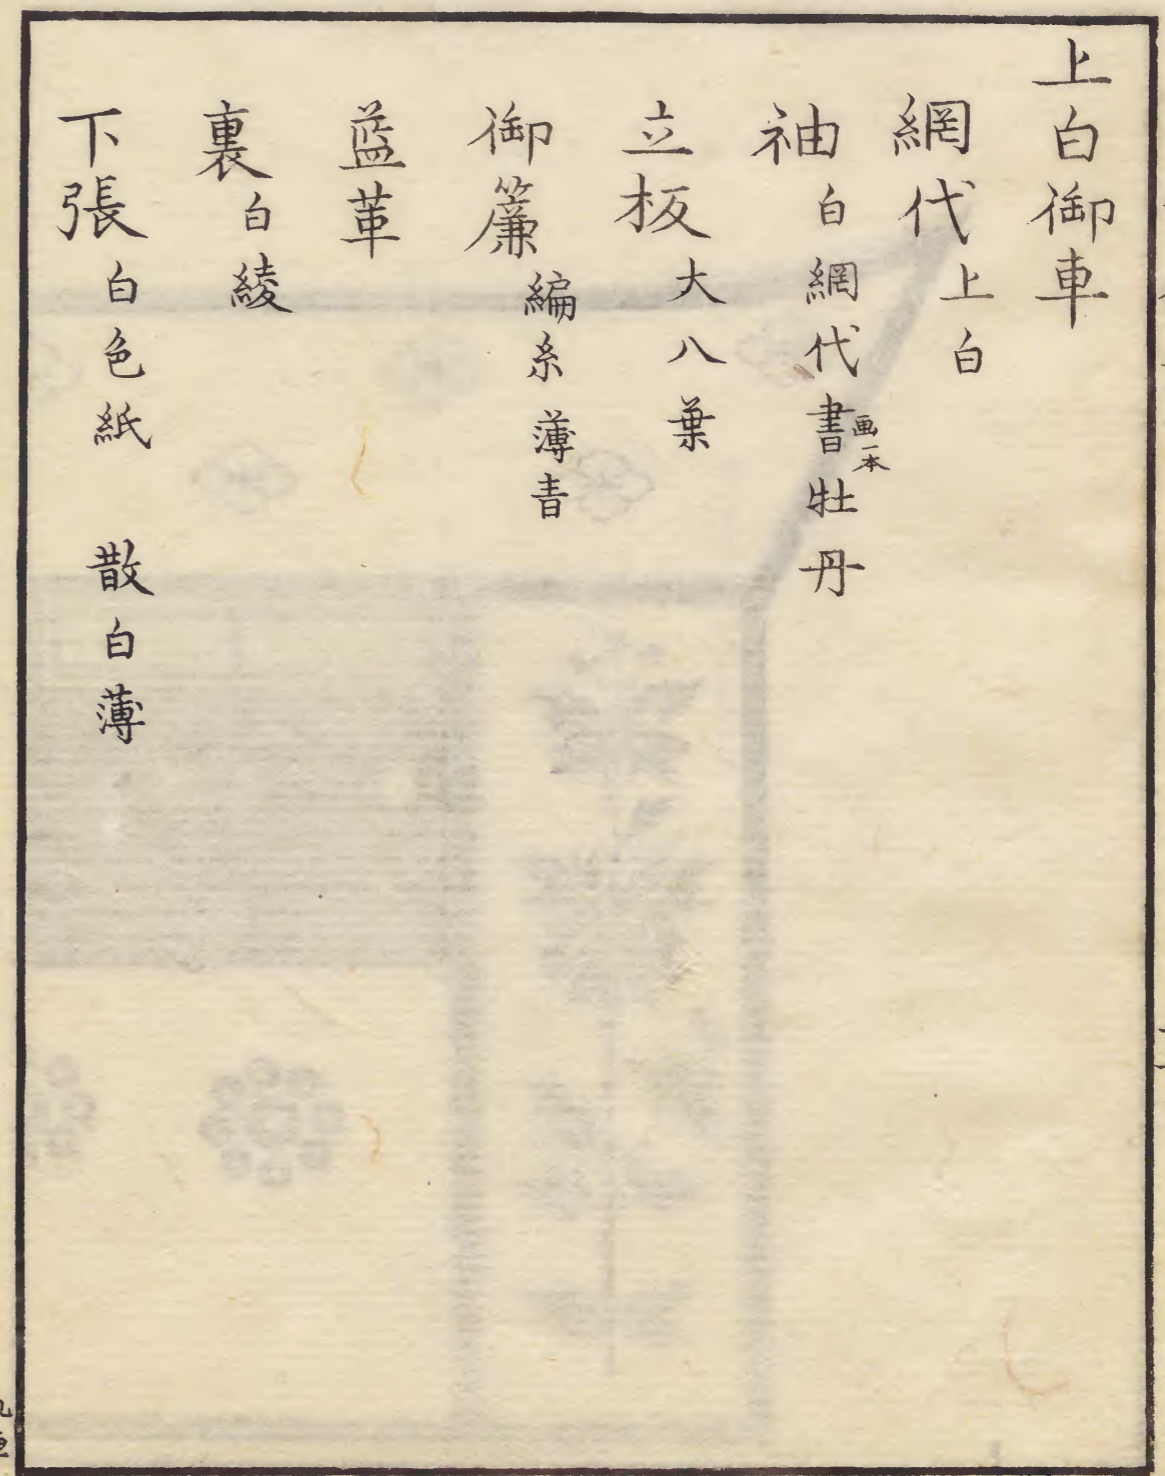 上白御車
網代 上白
袖 白網代書牡丹
画一本
立板 大八葉
御簾 編糸薄青
藍革
裏 白綾
下張 白色紙 散白薄